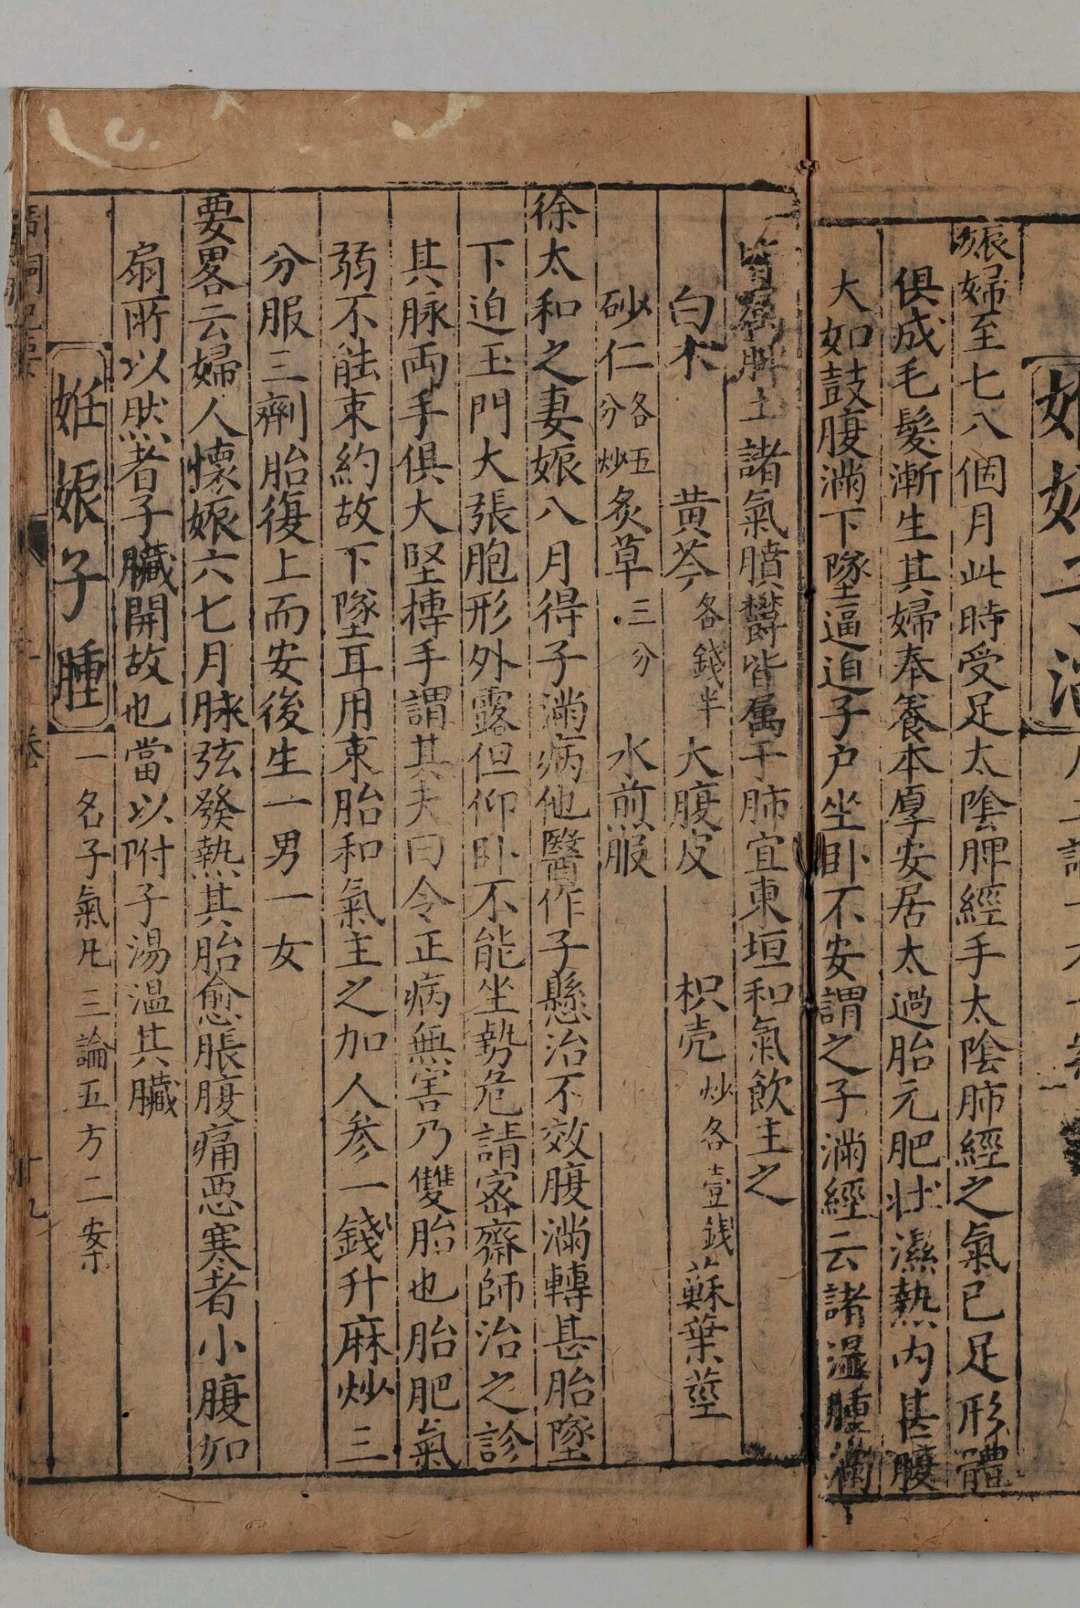 娠婦至七八個月此時受足太陰脾經手太陰肺經之氣已足形體
俱成毛髮漸生其婦奉養本厚安居太過胎元肥壯濕熱内甚腹
大如鼓腹滿下墜逼迫子户坐卧不安謂之子滿經云諸濕腫滿
皆屬脾土諸氣膹欝皆属于肺宜東垣和氣飲主之
白术 黄芩各錢半 大腹皮 枳壳炒各壹錢 蘇葉莖
砂仁各五分炒 炙草三分 水煎服
徐太和之妻娠八月得子滿病他醫作子懸治不效腹滿轉甚胎墜
下迫玉門大張胞形外露但仰卧不能坐勢危請密齋師治之診
其脉両手俱大堅摶手謂其夫曰令正病無害乃雙胎也胎肥氣
弱不能束約故下墜耳用束胎和氣主之加人参一錢升麻炒三
分服三劑胎復上而安後生一男一女
要畧云婦人懐娠六七月脉弦發熱其胎愈脹腹痛惡寒者小腹如
扇所以然者子臟開故也當以附子湯温其臟
妊娠子腫 一名子氣凡三論五方二案